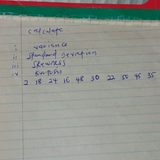 Calculate
i variance
ii Standard Deviation
iii Skewness
iv Kurtosis
2 18 24 16 48 30 22 50 45 35